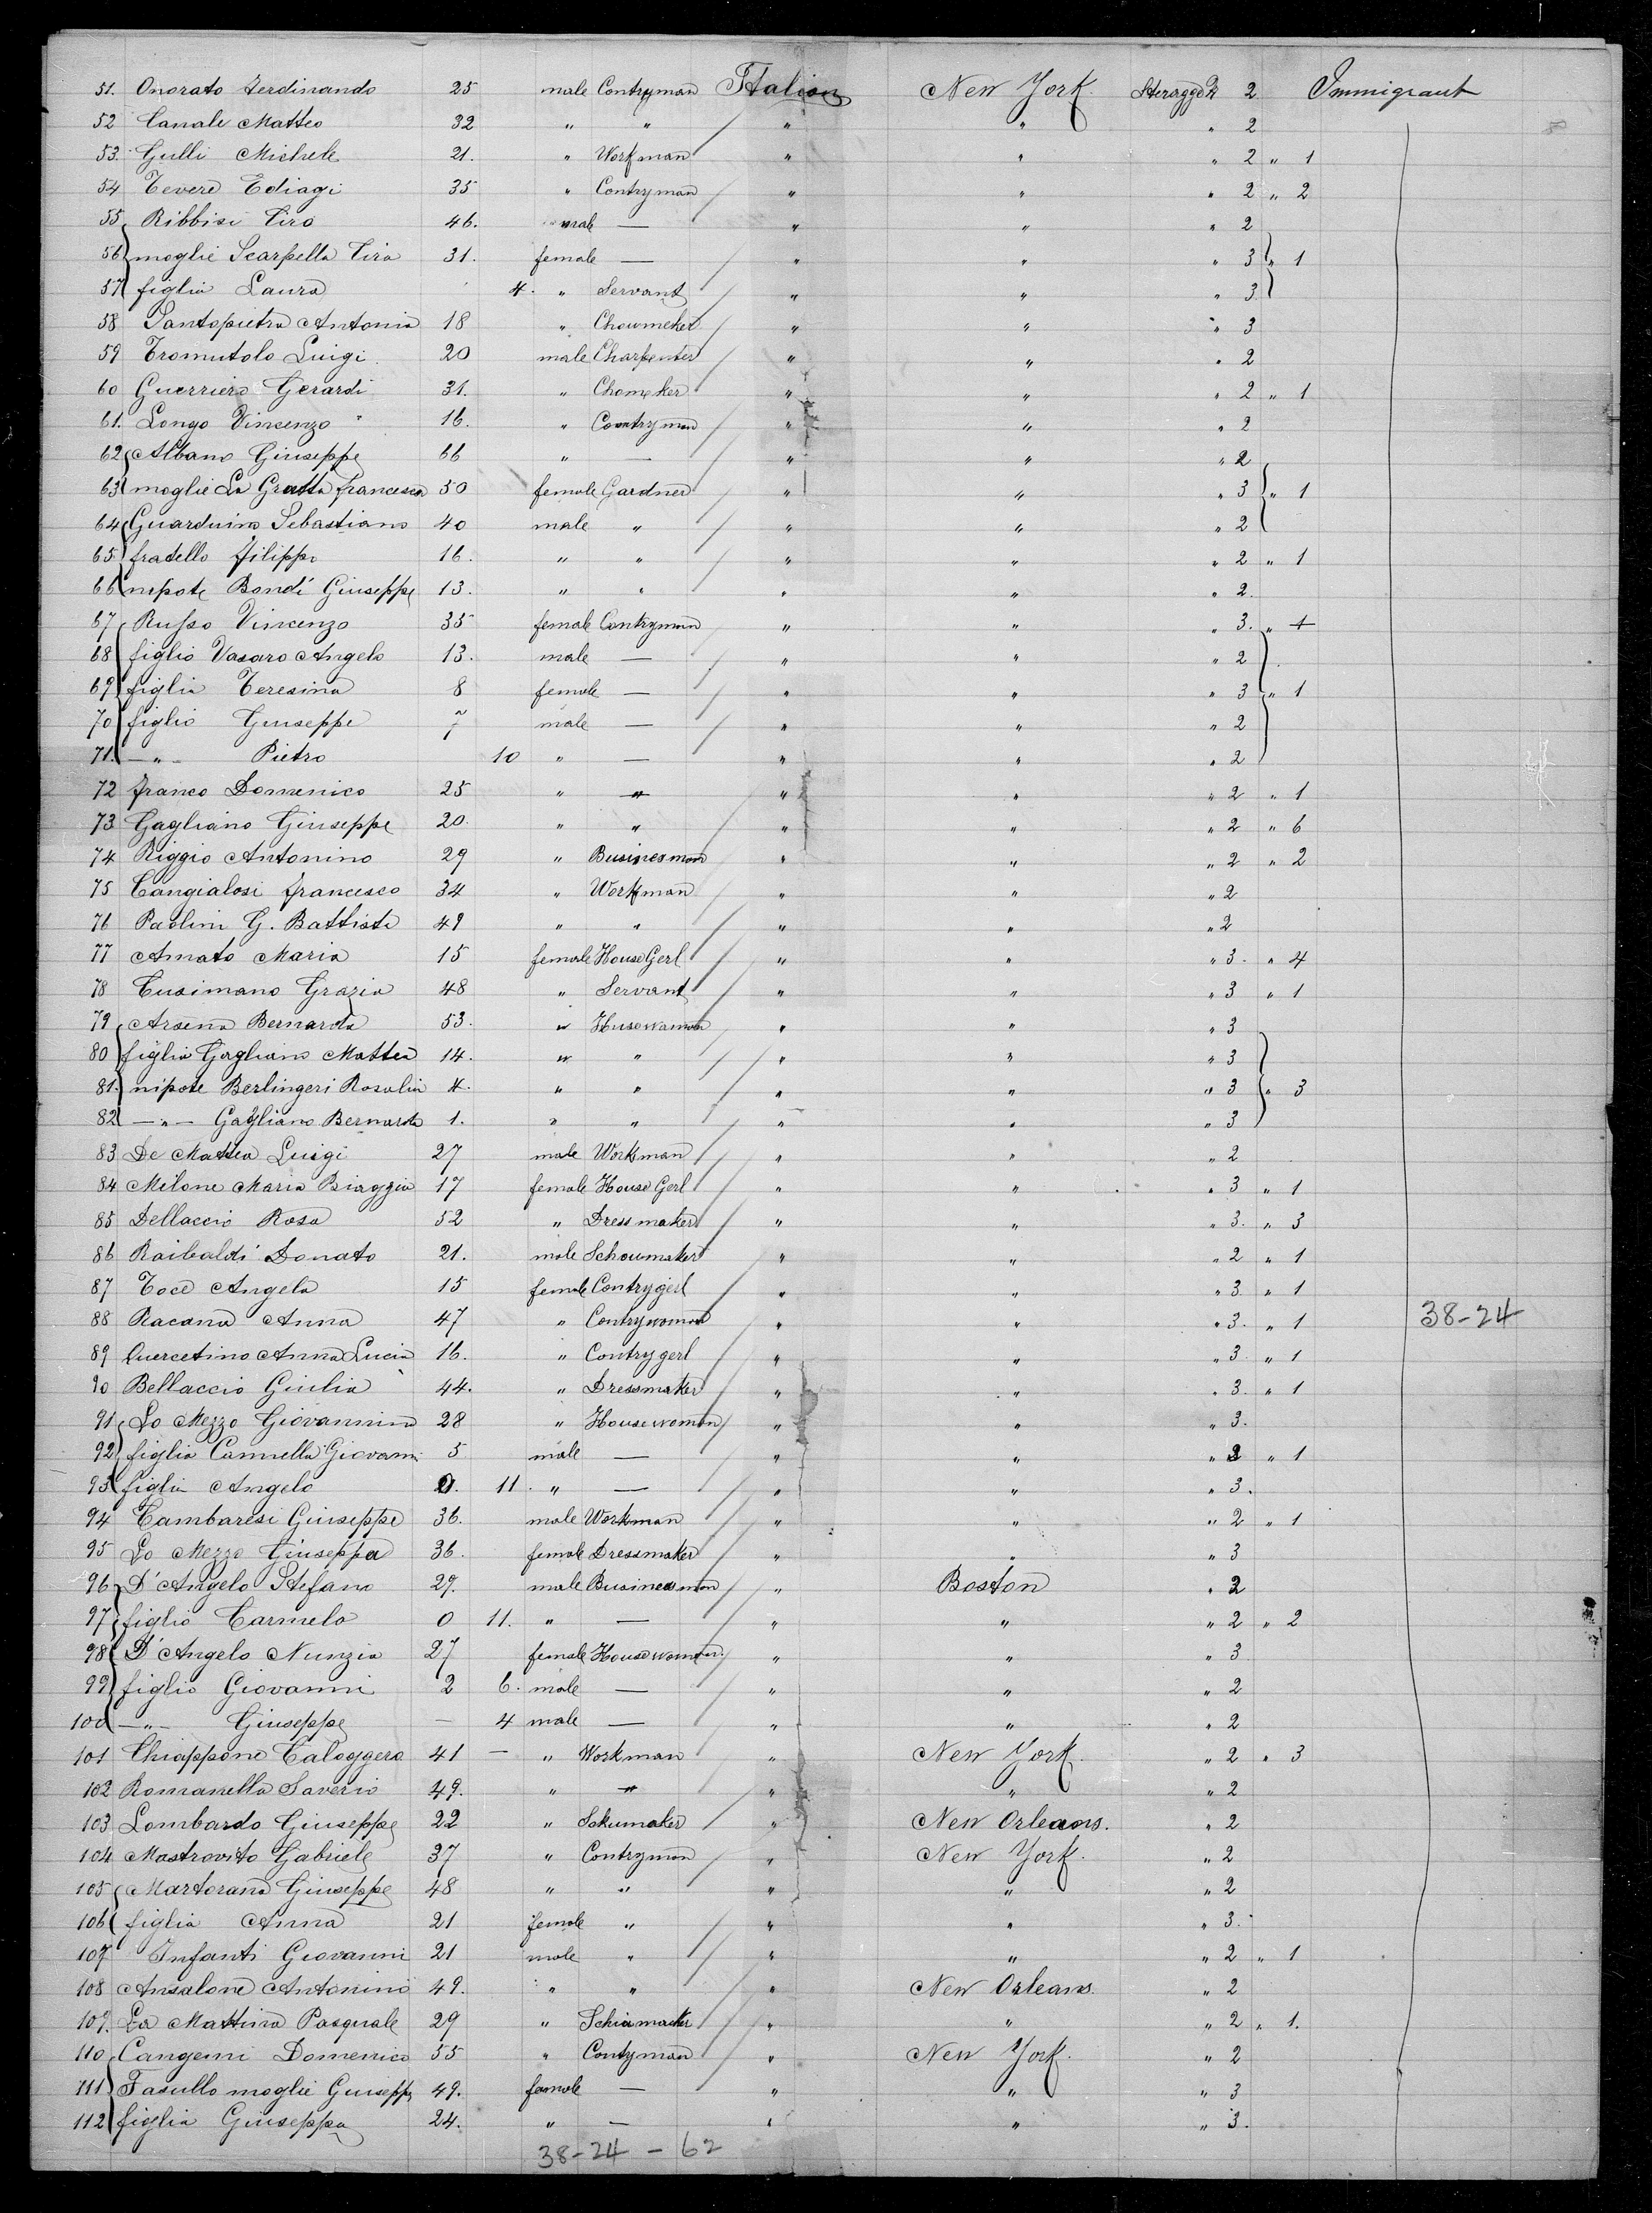 51. Onorato Ferdinando 25 male Contryman Italian New York Steragge N 2 Immigrant
52 Canale Matteo 32 " " " " " 2
53. Gulli Michele 21. " Workman " " " 2 " 1
54 Tevere Ediagi 35 " Contryman " " " 2 " 2
55 Ribbisi Ciro 46. male — " " " 2
56 moglie Scarpella Cira 31. female — " " " 3 " 1
57 figlia Laura 4. " Servant " " " 3
58 Santopietra Antonia 18 " Choumeker " " " 3
59 Tromutolo Luigi 20 male Charpenter " " " 2
60 Guerriero Gerardi 31. " Chomeker " " " 2 " 1
61. Longo Vincenzo 16. " Countryman " " " 2
62 Albano Giuseppe 66 " — " " " 2
63 moglie La Gratta francesca 50 female Gardner " " " 3 " 1
64 Guarduino Sebastiano 40 male " " " " 2
65 fratello filippo 16. " " " " " 2 " 1
66 nipote Bondí Giuseppe 13. " " " " " 2.
67 Russo Vincenzo 35 female Contryman " " " 3. " 1
68 figlio Vasaro Angelo 13. male — " " " 2
69 figlia Teresina 8 female — " " " 3 " 1
70 figlio Giuseppe 7 male — " " " 2
71. —"— Pietro 10 " — " " " 2
72 franco Domenico 25 " " " " " 2 " 1
73 Gagliano Giuseppe 20. " " " " " 2 " 6
74 Riggio Antonino 29 " Businesman " " " 2 " 2
75 Cangialosi francesco 34 " Workman " " " 2
76 Paolini G. Battista 49 " " " " " 2
77 Amato Maria 15 female House Gerl " " " 3. " 4
78 Cusimano Grazia 48 " Servant " " " 3 " 1
79 Arsena Bernarda 53. " Husewaman " " " 3
80 figlia Gagliano Mattea 14. " " " " " 3
81. nipote Berlingeri Rosalia 4. " " " " " 3 " 3
82 —"— Gagliano Bernarda 1. " " " " " 3
83 De Mattea Luigi 27 male Workman " " " 2
84 Milone Maria Biaggia 17 female House Gerl " " " 3 " 1
85 Dellaccio Rosa 52 " Dressmaker " " " 3. " 3
86 Raibaldi Donato 21. male Schoumaker " " " 2 " 1
87 Toce Angela 15 female Contrygerl " " " 3. " 1
88 Racana Anna 47 " Contrywoman " " " 3. " 1 38-24
89 Quercetino Anna Lucia 16. " Contrygerl " " " 3. " 1
90 Bellaccio Giulia 44. " Dressmaker " " " 3. " 1
91 Lo Mezzo Giovannina 28 " Housewoman " " " 3.
92 figlia Cannella Giovanni 5 male — " " " 2 " 1
93 figlia Angelo 0. 11. " — " " " 3.
94 Cambaresi Giuseppe 36. male Workman " " " 2 " 1
95 Lo Mezzo Giuseppa 36. female Dressmaker " " " 3
96 D'Angelo Stefano 29. male Businesman " Boston " 2
97 figlio Carmelo 0 11. " — " " " 2 " 2
98 D'Angelo Nunzia 27 female Housewoman. " " " 3
99 figlio Giovanni 2 6. male — " " " 2
100 —"— Giuseppe — 4 male — " " " 2
101 Chiappone Caloggero 41 — " Workman " New York " 2 " 3
102 Romanella Saverio 49. " " " " " 2
103 Lombardo Giuseppe 22 " Sokumaker " New Orleans. " 2
104 Mastrovito Gabriele 37 " Contryman " New York. " 2
105 Martorana Giuseppe 48 " " " " " 2
106 figlia Anna 21 female " " " " 3.
107 Infanti Giovanni 21 male " " " " 2 " 1
108 Ansalone Antonino 49. " " " New Orleans. " 2
109. La Mattina Pasquale 29 " Schiamaker " " " 2 " 1.
110 Cangemi Domenico 55 " Contyman " New York. " 2
111 Fasullo moglie Giuseppa 49. female — " " " 3
112 figlia Giuseppa 24. " — " " " 3.
38-24 - 62